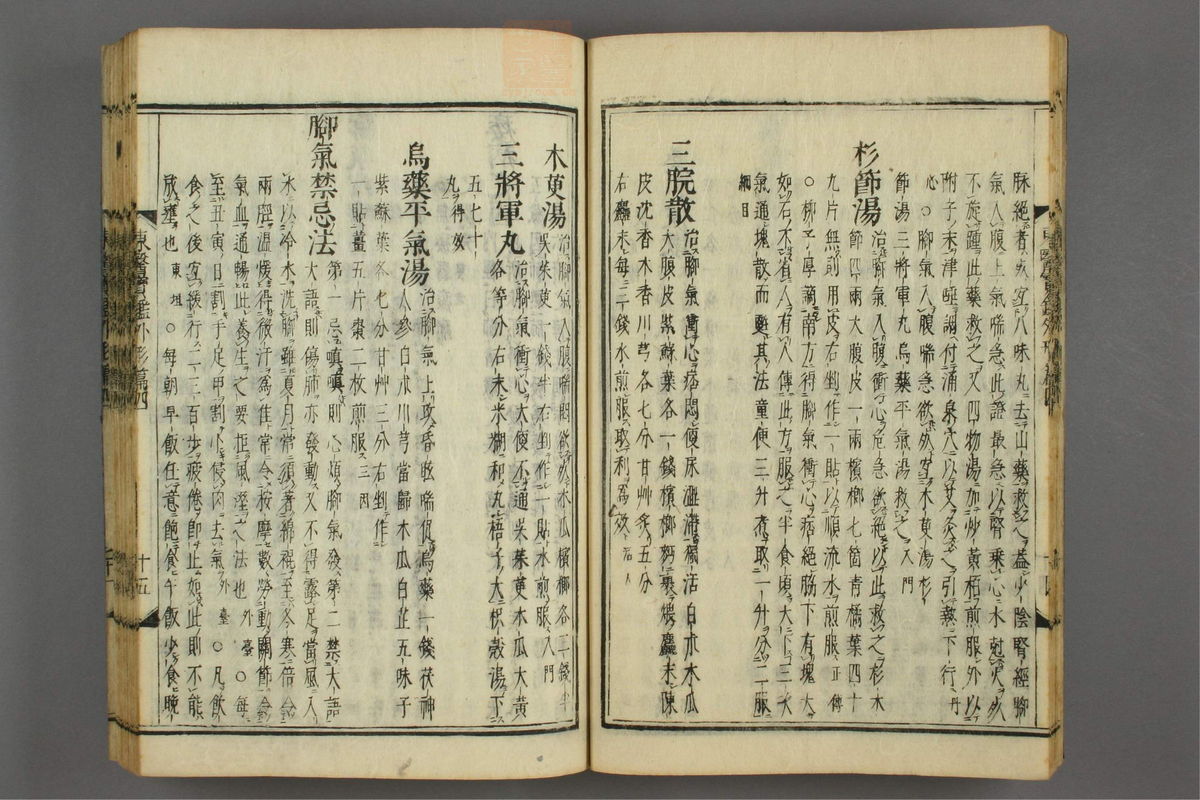 脉絶者亦宜八味丸去山藥救之盖少陰腎經脚
氣入腹上氣喘急此證最急以腎乗心水尅火火
不旋踵此藥救之又四物湯加炒黄栢煎服外以
附子末津唾調付涌泉穴以艾灸之引熱下行丹
心○脚氣入腹喘急欲死宜木萸湯杉
節湯三將軍丸烏藥平氣湯救之入門
杉節湯 治脚氣入腹衝心危急欲絶以此救之杉木
節四兩大腹皮一兩檳榔七箇青橘葉四十
九片無則用皮右剉作一貼以順流水煎服正傳
○柳子厚南方得脚氣衝心痞絶脇下有塊大
如石不省人有人傳此方服之半食頃大下三次
氣通塊散而甦其法童便三升煮取一升分二服
綱目
三脘散 治脚氣衝心痞悶便尿澁滯獨活白朮木瓜
大腹皮紫蘇葉各一錢檳榔麪裹煨麤末陳
皮沈香木香川芎各七分甘艸炙五分
右麤末每二錢水煎服取利爲效
木萸湯 治脚氣入腹喘悶欲死木瓜檳榔各二錢半
吴茱萸一錢半右剉作一貼水煎服入門
三將軍丸 治脚氣衝心大便不通吴茱萸木瓜大黄
各等分右末米糊和丸梧子大枳殼湯下
五七十
丸得效
烏藥平氣湯 治脚氣上攻昏眩喘促烏藥一錢茯神
人参白朮川芎當歸木瓜白芷五味子
紫蘇葉各七分甘艸三分右剉作
一貼薑五片棗二枚煎服三因
脚氣禁忌法 第一忌嗔嗔則心煩脚氣發第二禁大語
大語則傷肺亦發動又不得露足當風入
水以冷水洗脚雖夏月常須著綿裩至冬寒倍令
兩脛温煖得微汗爲佳常令按摩數勞動關節令
氣血通暢此養生之要拒風濕之法也外臺○每
至丑寅日割手足甲割少侵肉去氣外臺○凡飲
食之後宜緩行二三百步疲倦即止如此則不能
放壅也東垣○每朝早飯任意飽食午飯少食晩
東醫寶鑑外形篇四
十五